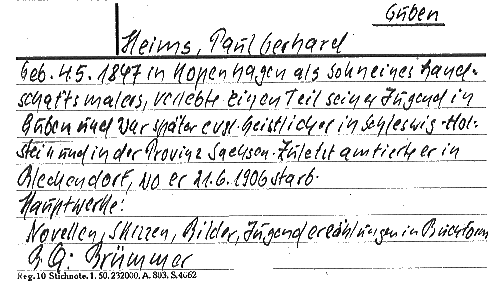 Guben
Heims, Paul Gerhard
Geb. 4.5. 1847 in Kopenhagen als Sohn eines Land-
schaftsmalers, verlebte einen Teil seiner Jugend in
Guben und war später evgl. Geistlicher in Schleswig-Hol-
stein und in der Provinz Sachsen. Zuletzt amtierte er in
Bleckendorf, wo er 21.6.1906 starb.
Hauptwerke:
Novellen, Skizzen, Bilder, Jugenderzählungen in Buchform
B Q: Brümmer
Reg. 10 Stichnote. I. 50. 232000. A. 803. S. 4662